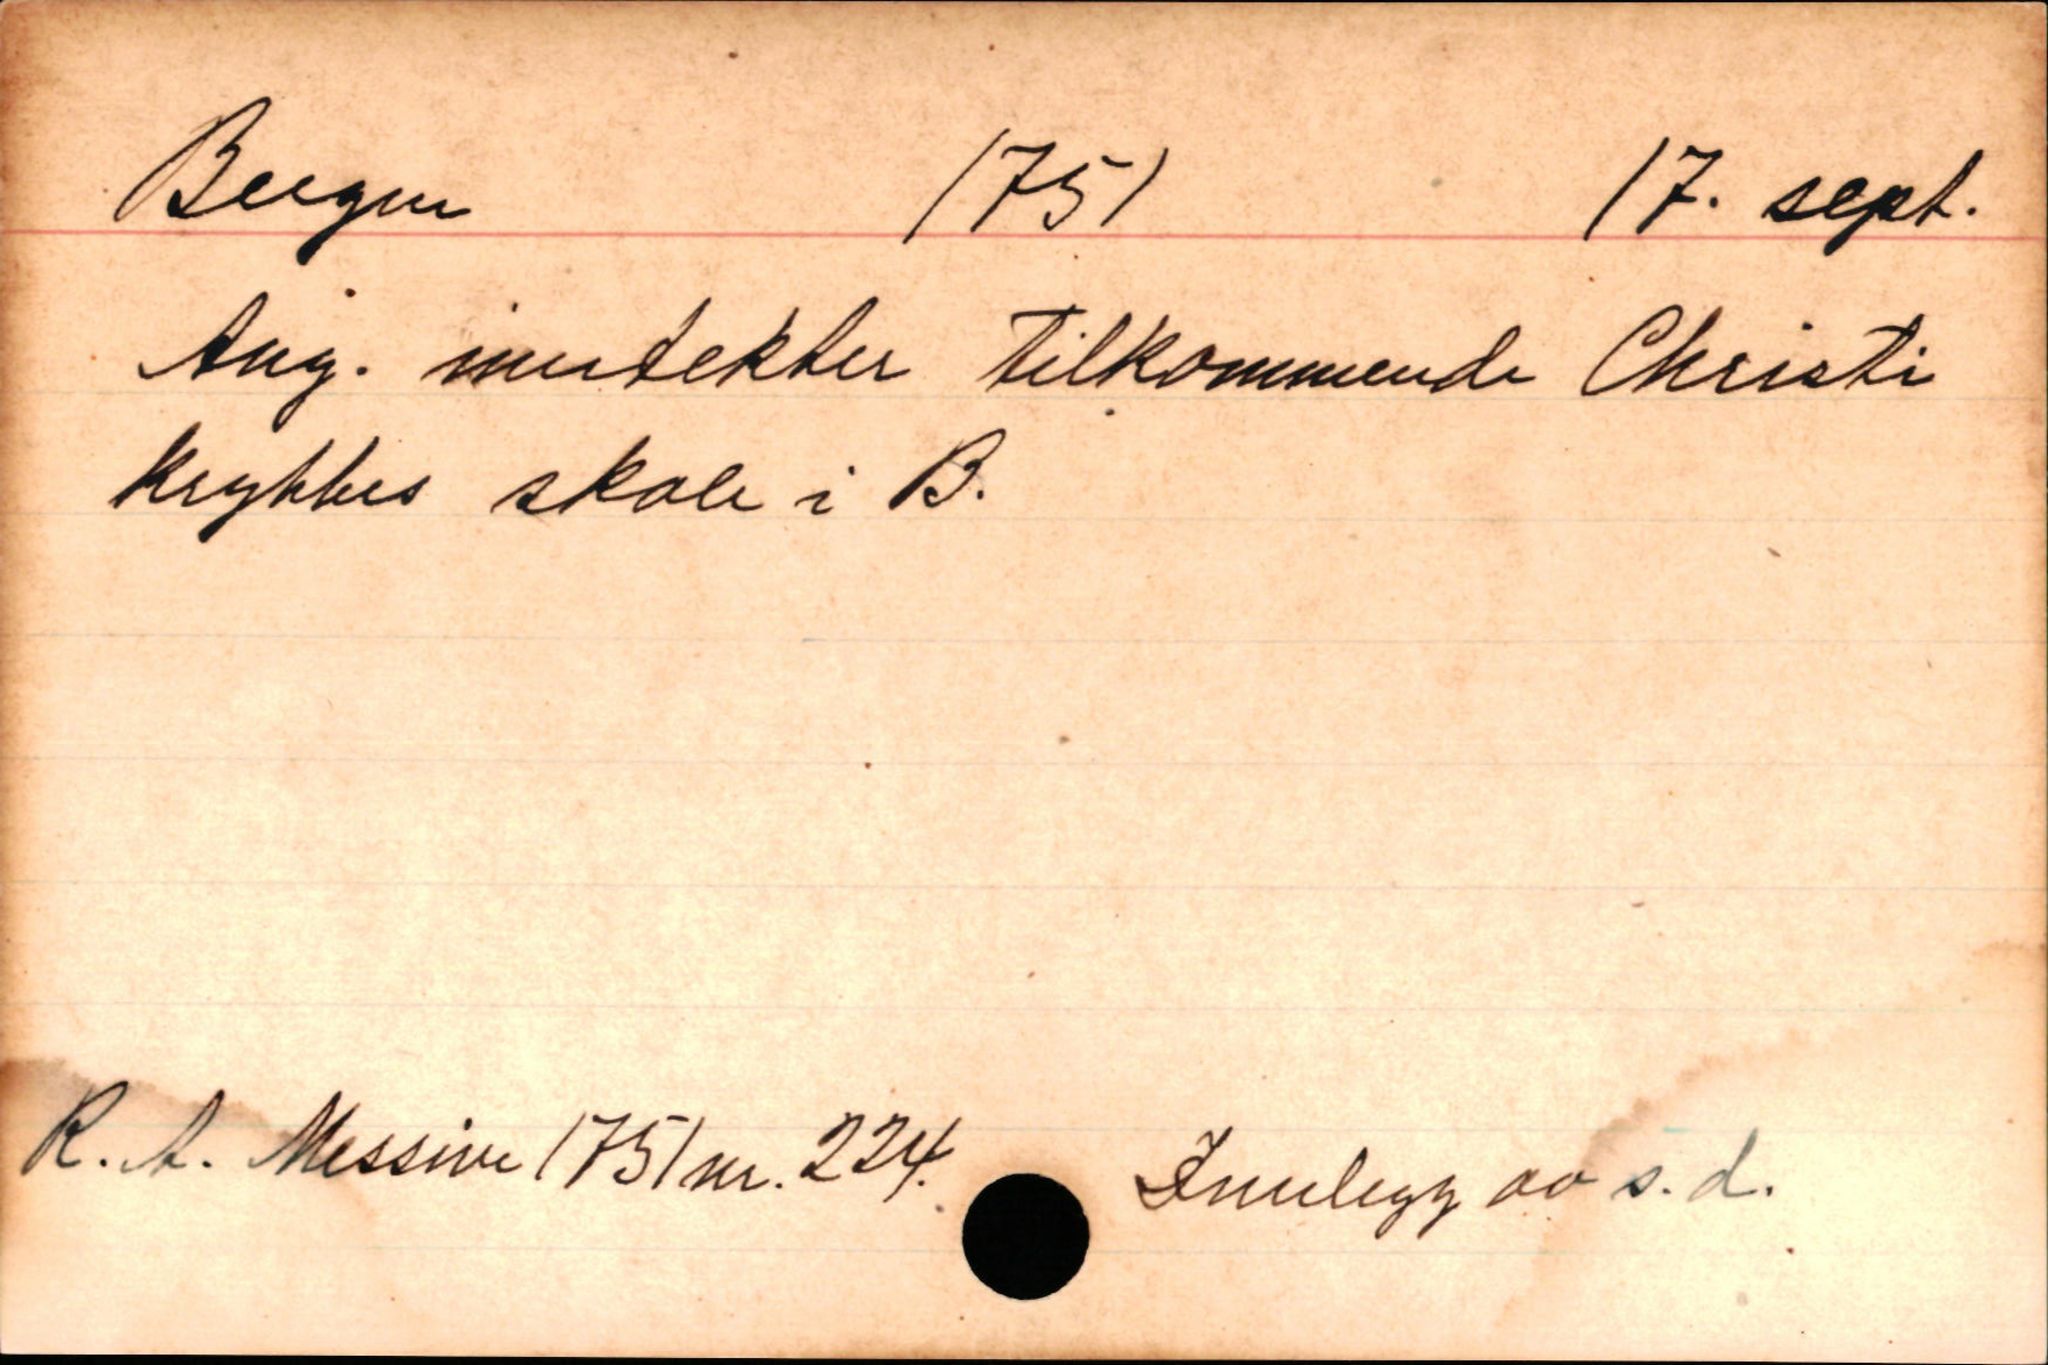 Bergen 1751 17. sept.
Ang. inntekter tilkommende Christi
krybbes skole i B.
R. A. Messive 1751 nr. 224. Innlegg av s. d.